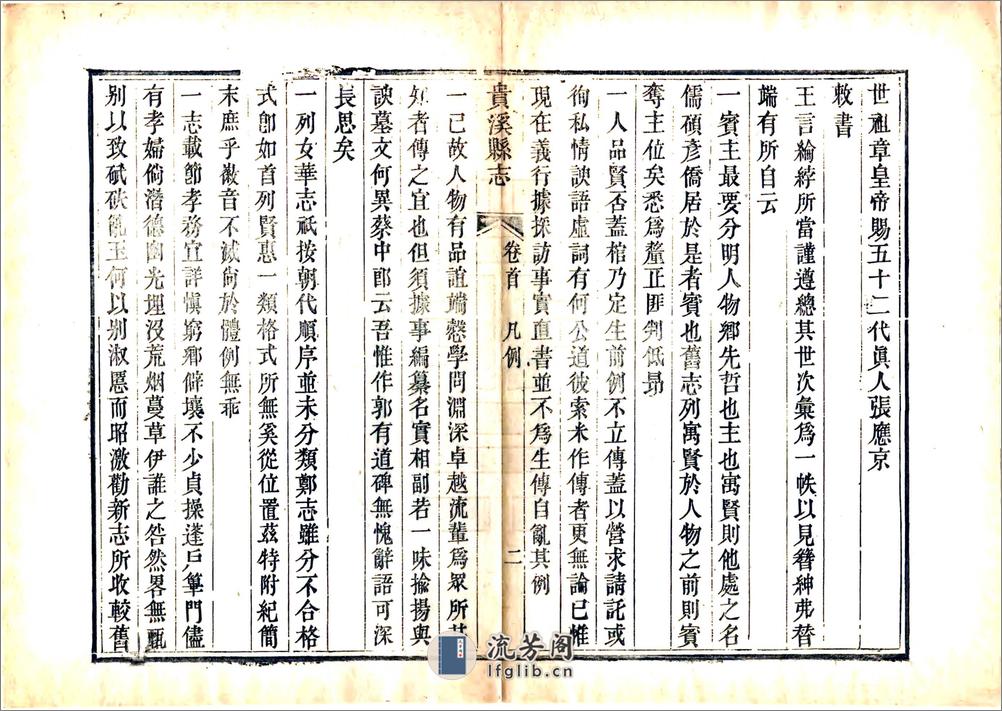 世祖章皇帝賜五十二代眞人張應京
敕書
王言綸綍所當謹遵總其世次彙爲一帙以見簪紳弗替
端有所自云
一賓主最要分明人物鄉先哲也主也寓賢則他處之名
儒碩彥僑居於是者賓也舊志列寓賢於人物之前則賓
奪主位矣悉爲釐正匪判低昻
一人品賢否蓋棺乃定生前例不立傳蓋以營求請託或
徇私情諛語虛詞有何公道彼索米作傳者更無論已惟
現在義行據採訪事實直書並不爲生傳自亂其例
貴溪縣志
卷首 凡例
二
一已故人物有品誼端愨學問淵深卓越流輩爲眾所共
知者傳之宜也但須據事編纂名實相副若一味揄揚與
諛墓文何異蔡中郎云吾惟作郭有道碑無愧辭語可深
長思矣
一列女華志祇按朝代順序並未分類鄭志雖分不合格
式卽如首列賢惠一類格式所無奚從位置茲特附紀簡
末庶乎徽音不滅尙於體例無乖
一志載節孝務宜詳愼窮鄉僻壤不少貞操蓬戶篳門儘
有孝婦倘潛德幽光埋沒荒烟蔓草伊誰之咎然畧無甄
別以致碔砆亂玉何以别淑慝而昭激勸新志所收較舊
流芳阁
lfglib.cn